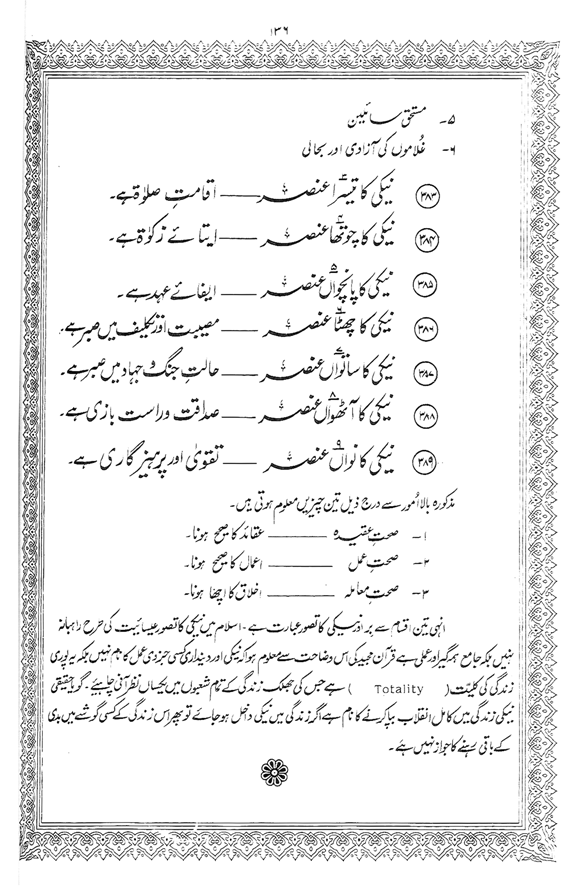 ۱۳۶
۵۔ مستحق سائلین
۶۔ غلاموں کی آزادی اور بحالی
۳۸۳ نیکی کا تیسرا عنصر ــــ اقامتِ صلوٰۃ ہے۔
۳۸۴ نیکی کا چوتھا عنصر ــــ ایتائے زکوٰۃ ہے۔
۳۸۵ نیکی کا پانچواں عنصر ــــ ایفائے عہد ہے۔
۳۸۶ نیکی کا چھٹا عنصر ــــ مصیبت اور تکلیف میں صبر ہے۔
۳۸۷ نیکی کا ساتواں عنصر ــــ حالتِ جنگ و جہاد میں صبر ہے۔
۳۸۸ نیکی کا آٹھواں عنصر ــــ صداقت و راست بازی ہے۔
۳۸۹ نیکی کا نواں عنصر ــــ تقویٰ اور پرہیزگاری ہے۔
مذکورہ بالا اُمور سے درج ذیل تین چیزیں معلوم ہوتی ہیں۔
۱۔ صحتِ عقیدہ ــــــ عقائد کا صحیح ہونا۔
۲۔ صحتِ عمل ــــــ اعمال کا صحیح ہونا۔
۳۔ صحتِ معاملہ ــــــ اخلاق کا اچھا ہونا۔
انہی تین اقسام سے بر اور نیکی کا تصور عبارت ہے۔ اسلام میں نیکی کا تصور عیسائیت کی طرح راہبانہ
نہیں بلکہ جامع ہمہ گیر اور عملی ہے قرآن مجید کی اس وضاحت سے معلوم ہوا کہ نیکی اور دینداری کسی جزوی عمل کا نام نہیں بلکہ یہ پوری
زندگی کی کلیّت ( Totality ) ہے جس کی جھلک زندگی کے تمام شعبوں میں یکساں نظر آنی چاہیئے۔ گویا حقیقی
نیکی زندگی میں کامل انقلاب بپا کرنے کا نام ہے اگر زندگی میں نیکی داخل ہو جائے تو پھر اس زندگی کے کسی گوشے میں بدی
کے باقی رہنے کا جواز نہیں ہے۔